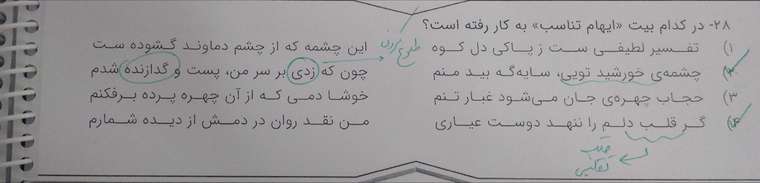 ۲۸- در کدام بیت «ایهام تناسب» به کار رفته است؟
۱) تفسیر لطیفی ست ز پاکی دل کوه این چشمه که از چشم دماوند گشوده ست
۲) چشمه‌ی خورشید تویی، سایه‌گه بید منم چون که زدی بر سر من، پست و گدازنده شدم
۳) حجاب چهره‌ی جان می‌شود غبار تنم خوشا دمی که از آن چهره پرده برفکنم
۴) گر قلب دلم را ننهد دوست عیاری من نقد روان در دمش از دیده شمارم
طلوع کردن
قلب
تقلبی